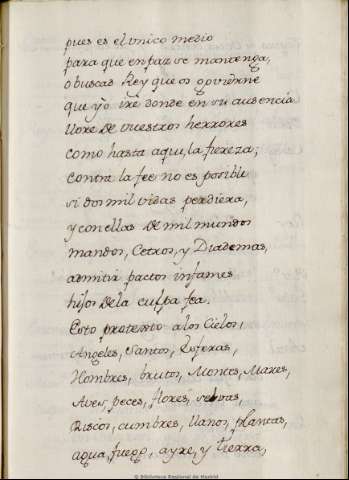 pues es el unico medio
para que en paz se mantenga,
o buscas Rey que os govierne
que yo ire donde en su ausencia
llore de vuestros herrores
como hasta aqui, la fiereza;
contra la fee no es posible
si dos mil vidas perdiera,
y con ellas de mil mundos
mandos, Cetros, y Diademas,
admitir pactos infames
hijos de la culpa fea.
Esto protesto a los Cielos,
Angeles, Santos, Esferas,
Hombres, brutos, Montes, Mares,
Aves, peces, flores, selvas,
Riscos, cumbres, llanos, plantas,
agua, fuego, ayre, y tierra,
© Biblioteca Regional de Madrid